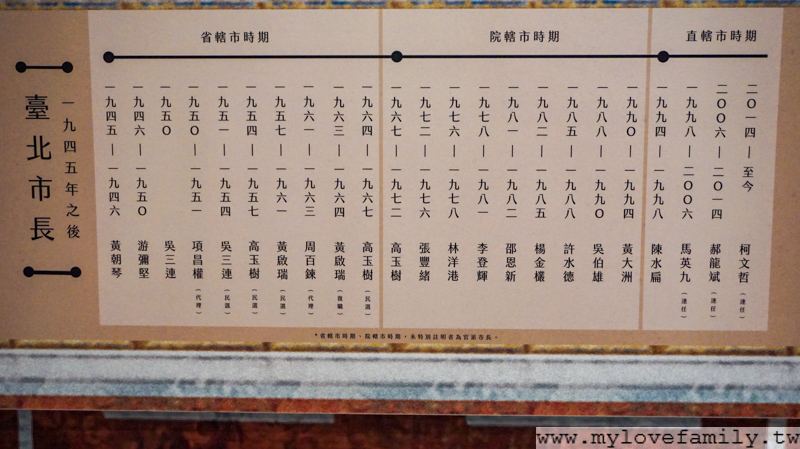 臺北市長
一九四五年之後
省轄市時期
一九四五—一九四六 黃朝琴
一九四六—一九五〇 游彌堅
一九五〇 吳三連
一九五〇—一九五一 項昌權(代理)
一九五一—一九五四 吳三連(民選)
一九五四—一九五七 高玉樹(民選)
一九五七—一九六一 黃啟瑞(民選)
一九六一—一九六三 周百鍊(代理)
一九六三—一九六四 黃啟瑞(復職)
一九六四—一九六七 高玉樹(民選)
院轄市時期
一九六七—一九七二 高玉樹
一九七二—一九七六 張豐緒
一九七六—一九七八 林洋港
一九七八—一九八一 李登輝
一九八一—一九八二 邵恩新
一九八二—一九八五 楊金欉
一九八五—一九八八 許水德
一九八八—一九九〇 吳伯雄
一九九〇—一九九四 黃大洲
直轄市時期
一九九四—一九九八 陳水扁
一九九八—二〇〇六 馬英九(連任)
二〇〇六—二〇一四 郝龍斌(連任)
二〇一四—至今 柯文哲(連任)
*省轄市時期、院轄市時期,未特別註明者為官派市長。
www.mylovefamily.tw